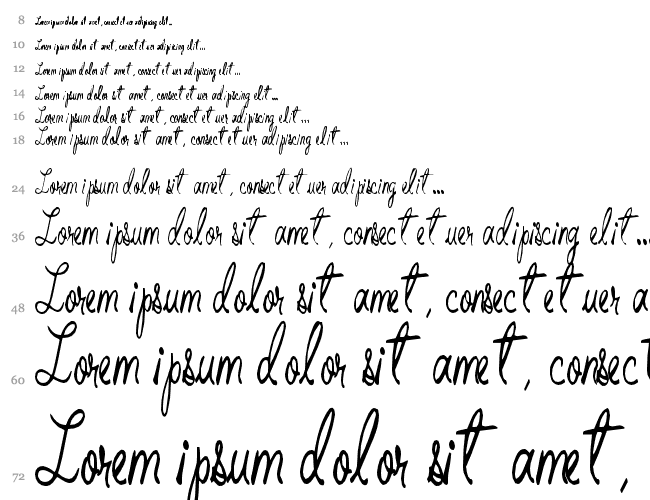 8 Lorem ipsum dolor sit amet, consect et uer adipiscing elit...
10 Lorem ipsum dolor sit amet, consect et uer adipiscing elit...
12 Lorem ipsum dolor sit amet, consect et uer adipiscing elit...
14 Lorem ipsum dolor sit amet, consect et uer adipiscing elit...
16 Lorem ipsum dolor sit amet, consect et uer adipiscing elit...
18 Lorem ipsum dolor sit amet, consect et uer adipiscing elit...
24 Lorem ipsum dolor sit amet, consect et uer adipiscing elit...
36 Lorem ipsum dolor sit amet, consect et uer adipiscing elit...
48 Lorem ipsum dolor sit amet, consect et uer a
60 Lorem ipsum dolor sit amet, consect
72 Lorem ipsum dolor sit amet,